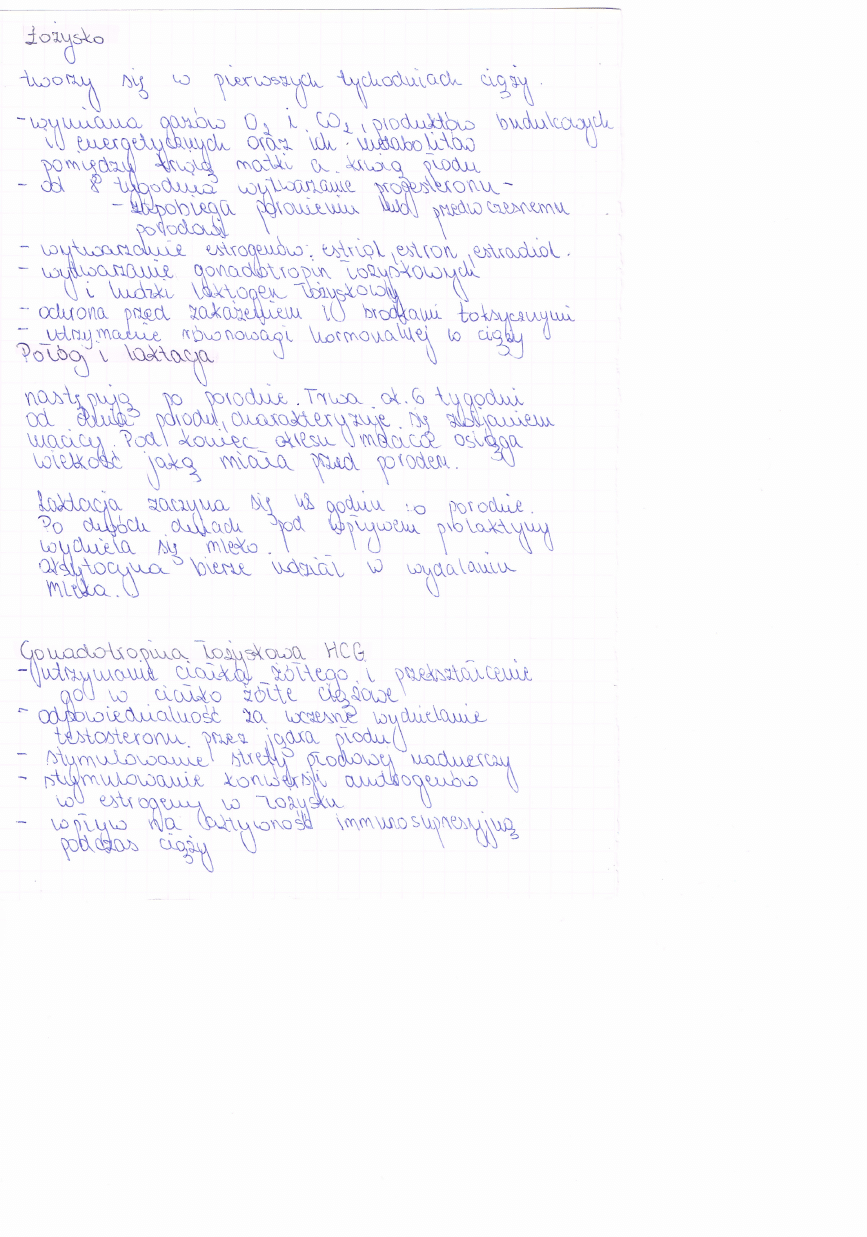 Łożysko
tworzy się w pierwszych tychodniach ciąży.
- wymiana gazów O2 i CO2, produktów budulcowych
i energetycznych oraz ich metabolitów
pomiędzy krwią matki a krwią płodu
- od 8 tygodnia wytwarzanie progesteronu -
- zapobiega poronieniu lub przedwczesnemu
porodowi
- wytwarzanie estrogenów: estriol, estron, estradiol.
- wytwarzanie gonadotropin łożyskowych
i ludzki laktogen łożyskowy
- ochrona przed zakażeniem i środkami toksycznymi
- utrzymanie równowagi hormonalnej w ciąży
Połóg i laktacja
następują po porodzie. Trwa ok. 6 tygodni
od dnia porodu, charakteryzuje się zwijaniem
macicy. Pod koniec okresu macica osiąga
wielkość jaką miała przed porodem.
Laktacja zaczyna się 48 godzin po porodzie.
Po dwóch dniach pod wpływem prolaktyny
wydziela się mleko.
Oksytocyna bierze udział w wydalaniu
mleka.
Gonadotropina łożyskowa HCG
- utrzymanie ciałka żółtego i przekształcenie
go w ciałko żółte ciążowe
- odpowiedzialność za wczesne wydzielanie
testosteronu przez jądra płodu
- stymulowanie strefy płodowej nadnerczy
- stymulowanie konwersji androgenów
w estrogeny w łożysku
- wpływ na aktywność immunosupresyjną
podczas ciąży